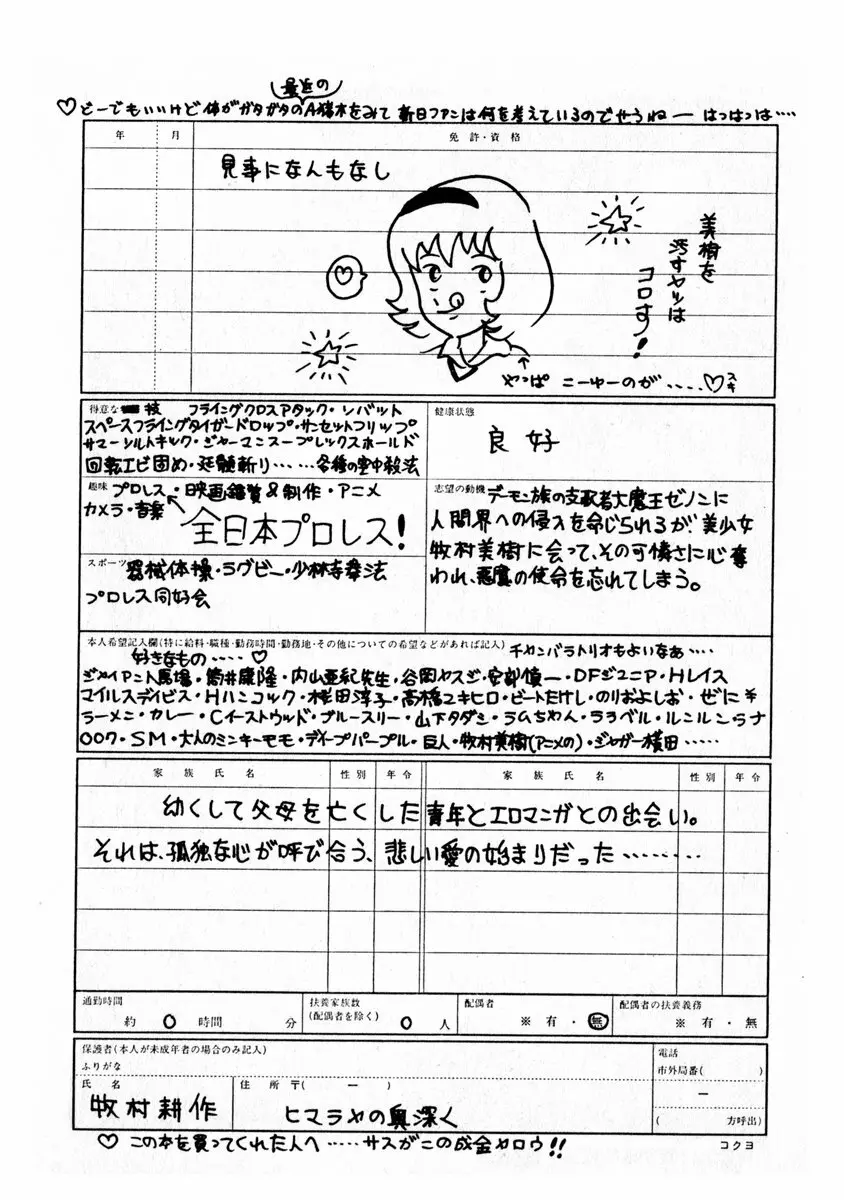 最近の
♡どーでもいいけど体がガタガタのA猪木をみて新日ファンは何を考えているのでせうねー はっはっは‥‥
年 月 免許・資格
見事になんもなし
美樹を
汚すヤツは
コロす!
♡
やっぱ こーゆーのが‥‥‥♡スキ
得意な 技 フライングクロスアタック・シバット
スペースフライングタイガードロップ・サンセットフリップ
サマーソルトキック・ジャーマンスープレックスホールド
回転エビ固め・延髄斬り‥‥‥各種の空中殺法
健康状態
良好
趣味 プロレス・映画鑑賞&制作・アニメ
カメラ・音楽
全日本プロレス!
志望の動機 デーモン族の支配者大魔王ゼノンに
人間界への侵入を命じられるが、美少女
牧村美樹に会って、その可憐さに心奪
われ、悪魔の使命を忘れてしまう。
スポーツ 器械体操・ラグビー・少林寺拳法
プロレス同好会
本人希望記入欄(特に給料・職種・勤務時間・勤務地・その他についての希望などがあれば記入) チャンバラトリオもよいなあ‥‥
好きなもの‥‥♡
ジャイアント馬場・筒井康隆・内山亜紀先生・谷岡ヤスジ・安部慎一・DFジュニア・Hレイス
マイルスデイビス・Hハンコック・桜田淳子・高橋ユキヒロ・ビートたけし・のりおよしお・ぜに¥
ラーメン・カレー・Cイーストウッド・ブルースリー・山下タダシ・ラムちゃん・ララベル・ルンルンラナ
007・SM・大人のミンキーモモ・ディープパープル・巨人・牧村美樹(アニメの)・ジャガー横田‥‥‥
家族氏名 性別 年令 家族氏名 性別 年令
幼くして父母を亡くした青年とエロマンガとの出会い。
それは、孤独な心が呼び合う、悲しい愛の始まりだった‥‥‥‥
通勤時間
約 0 時間 分
扶養家族数
(配偶者を除く) 0 人
配偶者
※ 有・無
配偶者の扶養義務
※ 有・無
保護者(本人が未成年者の場合のみ記入)
ふりがな
氏名
牧村耕作
住所 〒( ー )
ヒマラヤの奥深く
電話
市外局番( )
ー
( 方呼出)
♡ この本を買ってくれた人へ‥‥‥サスがこの成金ヤロウ!!
コクヨ